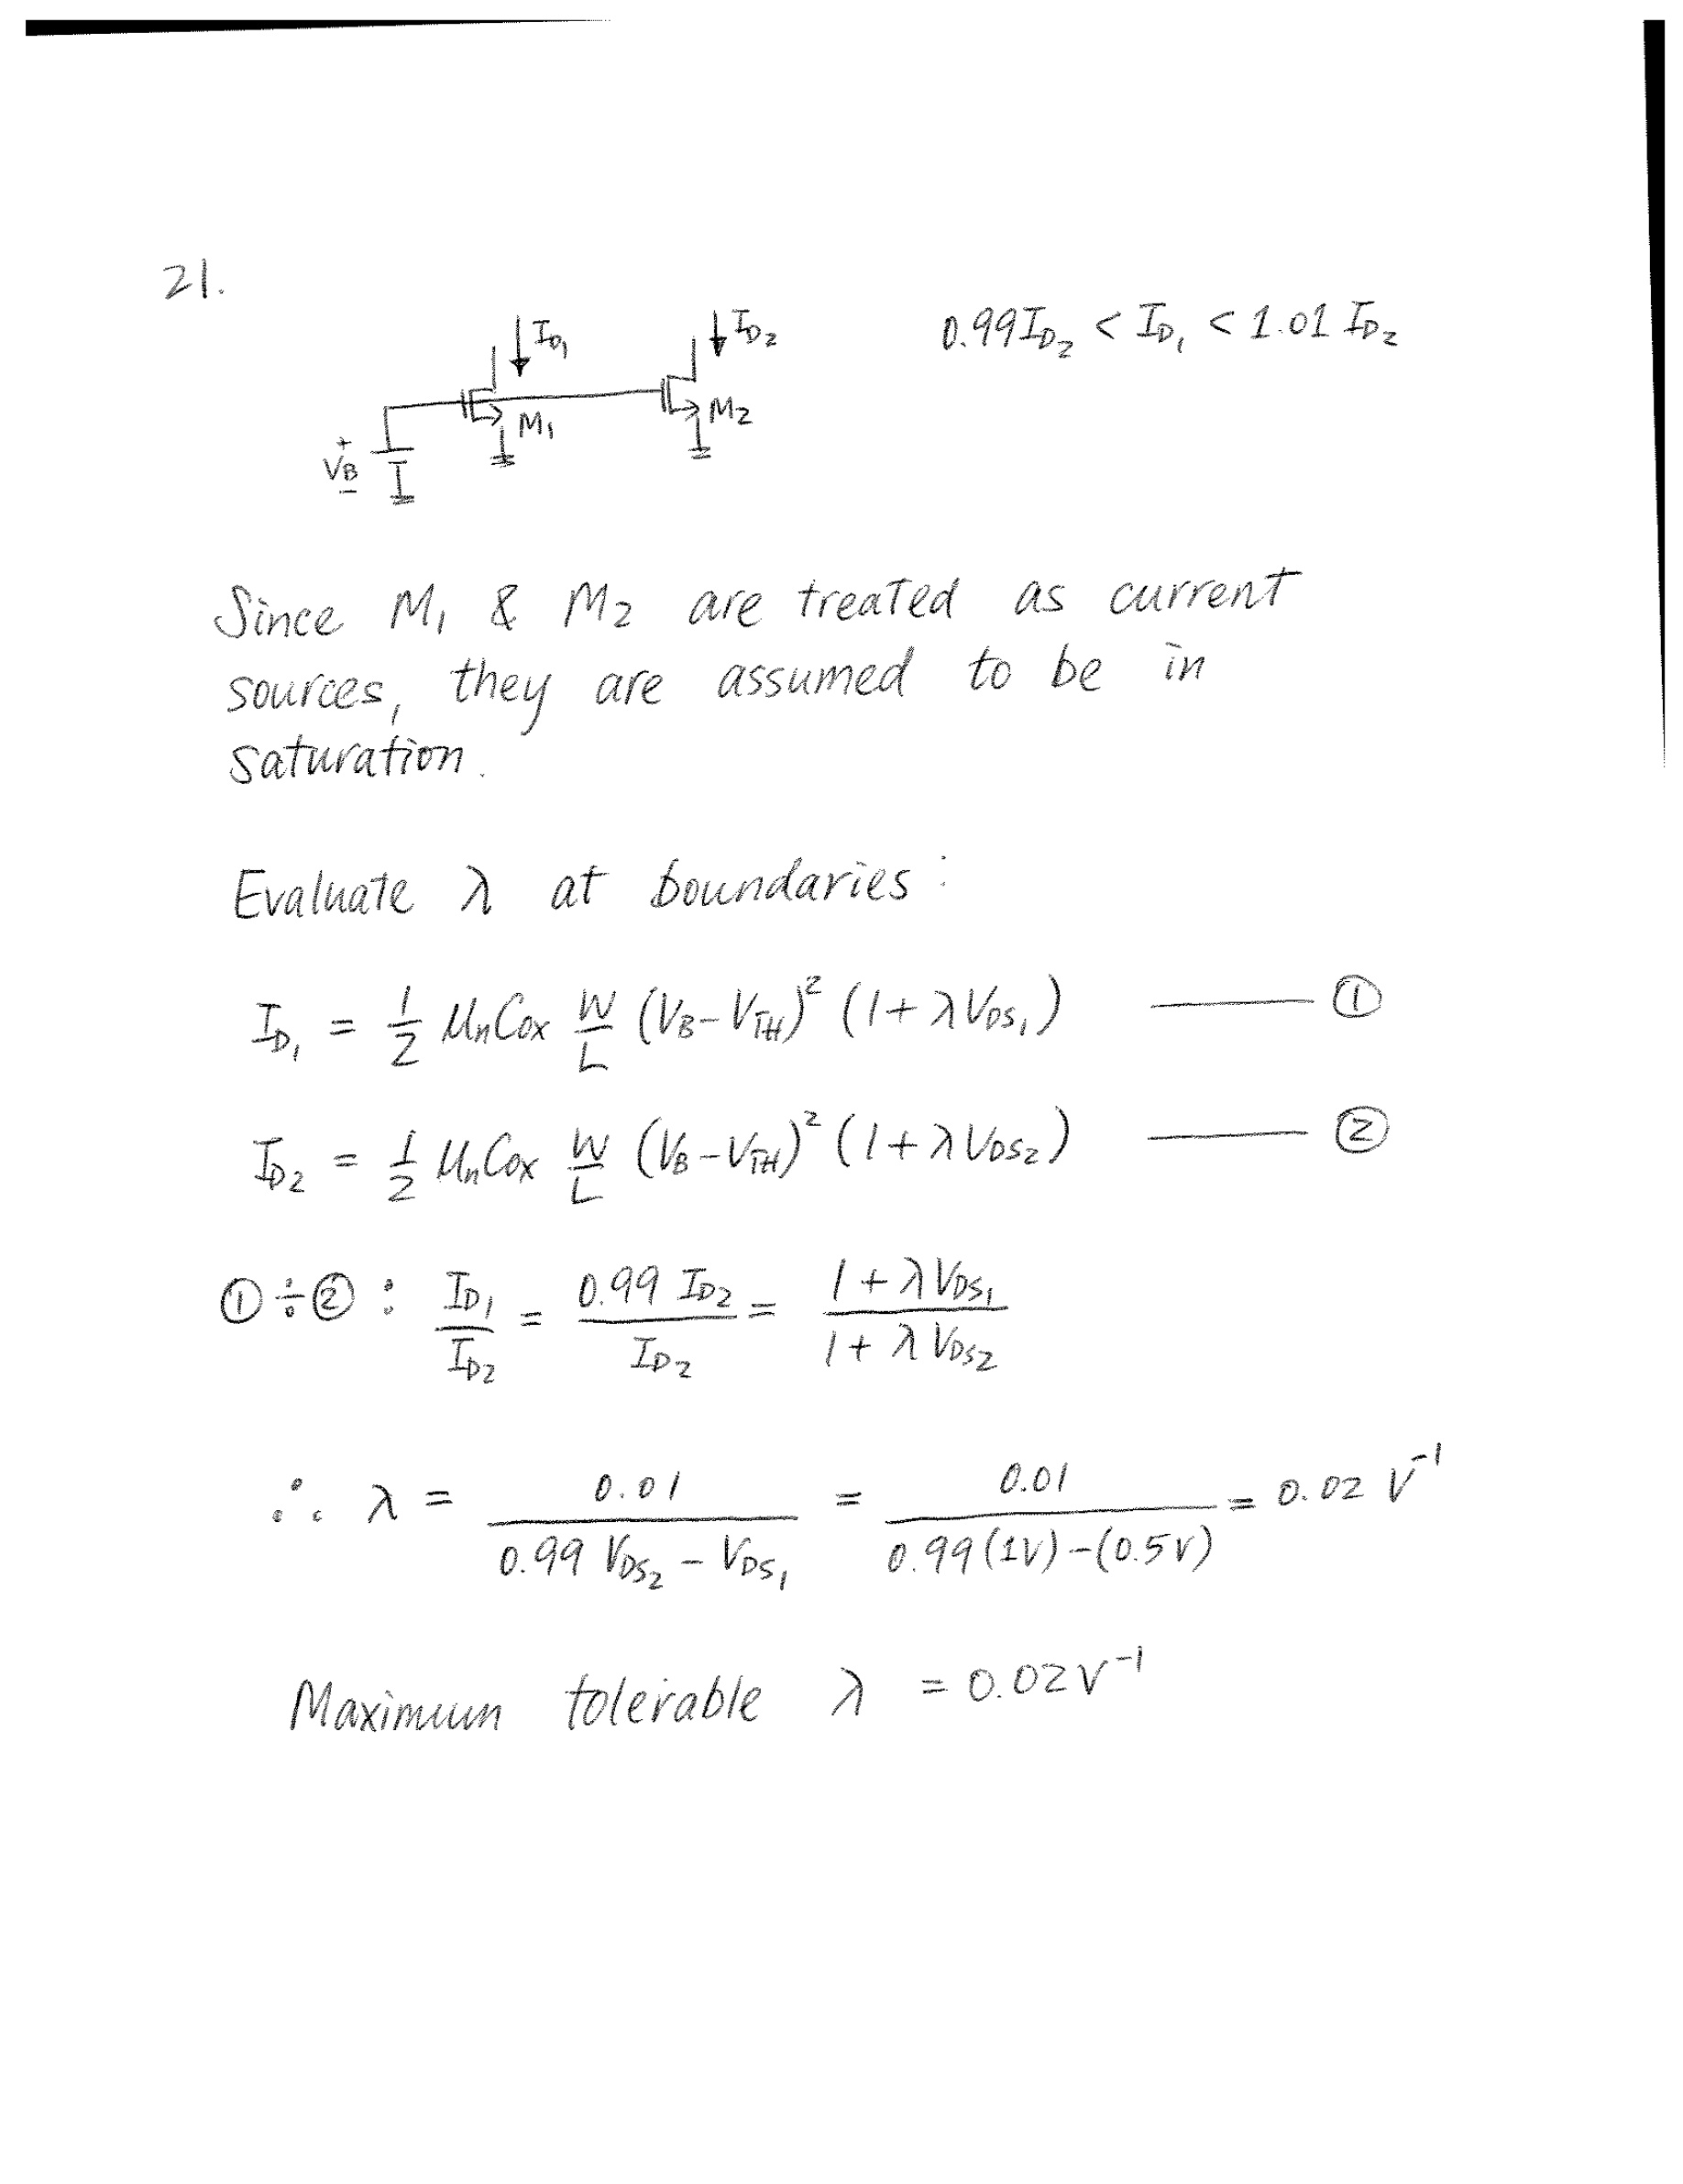 21.
I_D₁ I_D₂ 0.99 I_D₂ < I_D₁ < 1.01 I_D₂
M₁ M₂
+
V_B
−
Since M₁ & M₂ are treated as current
sources, they are assumed to be in
saturation.
Evaluate λ at boundaries :
I_D₁ = 1/2 μnCox W/L (V_B − V_TH)² (1 + λV_DS₁) —— ①
I_D₂ = 1/2 μnCox W/L (V_B − V_TH)² (1 + λV_DS₂) —— ②
① ÷ ② : I_D₁/I_D₂ = 0.99 I_D₂/I_D₂ = (1 + λV_DS₁)/(1 + λV_DS₂)
∴ λ = 0.01/(0.99 V_DS₂ − V_DS₁) = 0.01/(0.99(1V) − (0.5V)) = 0.02 V⁻¹
Maximum tolerable λ = 0.02 V⁻¹